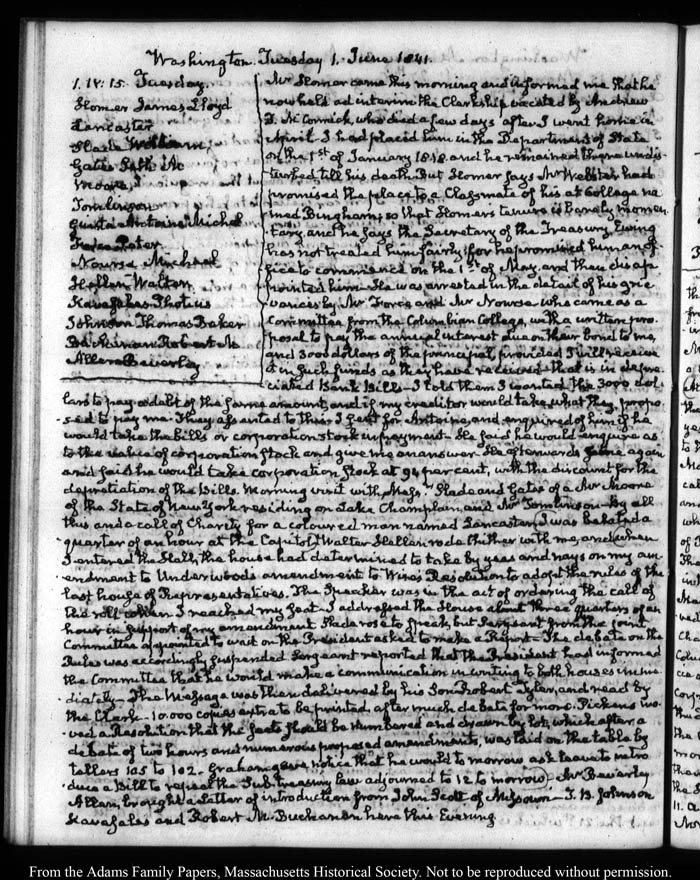 Washington. Tuesday 1. June 1841.
1. IV: 15. Tuesday.
Homer James Lloyd
Lancaster
Slade William
Gates Seth M
Moore
Tomlinson
Giusta Antoine Michel
Force Peter
Nourse Michael
Hellen Walter
Kavasales Photius
Johnson Thomas Baker
Buchanan Robert M
Allen Beverley
Mr Homer came this morning and informed me that he
now held ad interim the Clerkship vacated by Andrew
T. McCormick, who died a few days after I went home in
April. I had placed him in the Department of State
on the 1st of January 1818 and he remained there undis-
turbed till his death. But Homer says Mr Webster had
promised the place to a Classmate of his at College na-
med Bingham; so that Homer's tenure is barely momen-
tary, and he says the Secretary of the Treasury, Ewing
has not treated him fairly; for he promised him an of-
fice to commence on the 1st of May, and then disap-
pointed him. He was arrested in the detail of his grie-
vances by Mr Force and Mr Nourse who came as a
Committee from the Columbian College, with a written pro-
posal to pay the annual interest due on their bond to me,
and 3000 dollars of the principal, provided I will receive
it in such funds as they have received that is in depre-
ciated Bank Bills. I told them I wanted the 3000 dol-
lars to pay a debt of the same amount, and if my creditor would take what they propo-
sed to pay me. They assented to this. I sent for Antoine, and enquired of him if he
would take the bills or corporation stock in payment. He said he would enquire as
to the value of corporation stock and give me an answer. He afterwards came again
and said he would take corporation stock at 94 per cent, with the discount for the
depreciation of the Bills. Morning visit with Messrs Slade and Gates of a Mr Moore
of the State of New York residing on Lake Champlain, and Mr Tomlinson. By all
this and a call of Charity for a coloured man named Lancaster, I was belated a
quarter of an hour at the Capitol. Walter Hellen rode thither with me, and when
I entered the Hall, the house had determined to take by yeas and nays on my am-
endment to Underwood's amendment to Wise's Resolution to adopt the rules of the
last house of Representatives. The Speaker was in the act of ordering the call of
the roll when I reached my seat. I addressed the House about three quarters of an
hour in support of my amendment. Slade rose to speak, but Sergeant from the joint
Committee appointed to wait on the President asked to make a Report. The debate on the
Rules was accordingly suspended. Sergeant reported that the President had informed
the Committee that he would make a communication in writing to both houses imme-
diately. The Message was then delivered by his Son Robert Tyler, and read by
the Clerk. 10.000 copies extra to be printed, after much debate for more. Pickens mo-
ved a Resolution that the seats should be numbered and drawn by lot, which after a
debate of two hours and numerous proposed amendments, was laid on the table by
tellers 105 to 102. Graham gave notice that he would to morrow ask leave to intro-
duce a Bill to repeal the Sub-treasury law. adjourned to 12 to morrow. Mr Beverley
Allen, brought a Letter of introduction from John Scott of Missouri. T. B. Johnson
Kavasales and Robert M. Buchanan here this Evening.
From the Adams Family Papers, Massachusetts Historical Society. Not to be reproduced without permission.